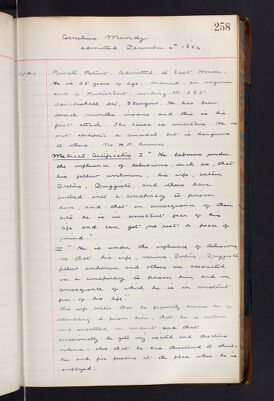 258
Cornelius Mundy
admitted December 4th 1894.
Private Patient. Admitted to East House.
He is 35 years of age, married an engineer
and a Protestant, residing at 185
Glasgow. He has been
some months insane and this is his
first attack. The cause is unknown. He is
not epileptic or suicidal but is dangerous
to others. No H.P. known.
Medical Certificates I "He labours under
the influence of delusions, such as, that
his fellow workmen, his wife, certain
Doctors, Druggists, and others have
entered into a conspiracy to poison
him and that in consequence of these
he is in constant fear of his
life and can get no rest or peace of
mind."
II "He is under the influence of delusions
is that his wife, various Doctors, Druggists
fellow workmen and others are associated
in a conspiracy to poison him and in
consequence of which he is in constant
fear of his life"
His wife states that he frequently accuses her of
attempting to poison him, that he is restless
and unsettled in conduct and that
occasionally he gets very excited and
also that he has threatened to shoot
her and five persons at the place where he is
employed.